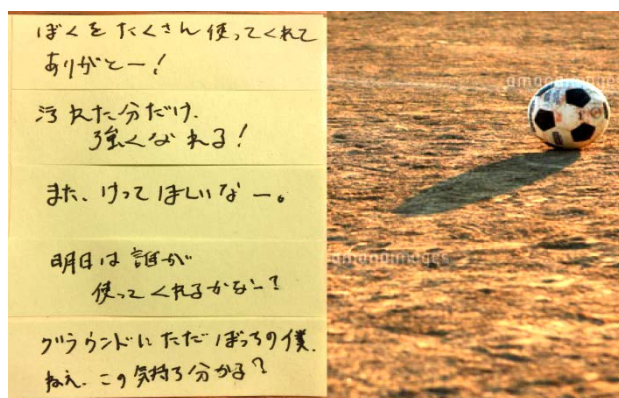 ぼくをたくさん使ってくれて
ありがとー！
汚れた分だけ、
強くなれる！
また、けってほしいなー。
明日は誰が
使ってくれるかなー？
グラウンドにただぼっちの僕、
ねえ、この気持ち分かる？
amanaimages
amanaimages